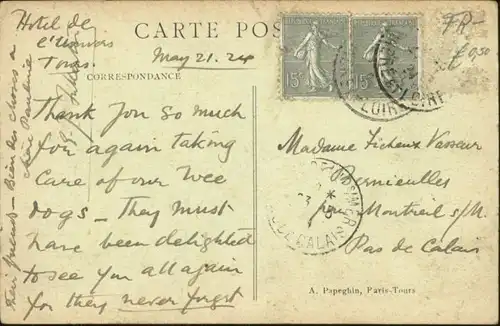 Hotel de
l'Univers
Tours.
CARTE POS
May 21. 24
CORRESPONDANCE
Thank you so much
for again taking
care of our wee
dogs - They must
have been delighted
to see you all again
for they never forget
their friends - Bien des choses a
15c
15c
INDRE ET LOIRE
PAS DE CALAIS
FR-
€ 0,50
Madame Ficheux Vasseur
Cormeilles
par Montreuil s/M.
Pas de Calais
A. Papeghin, Paris-Tours